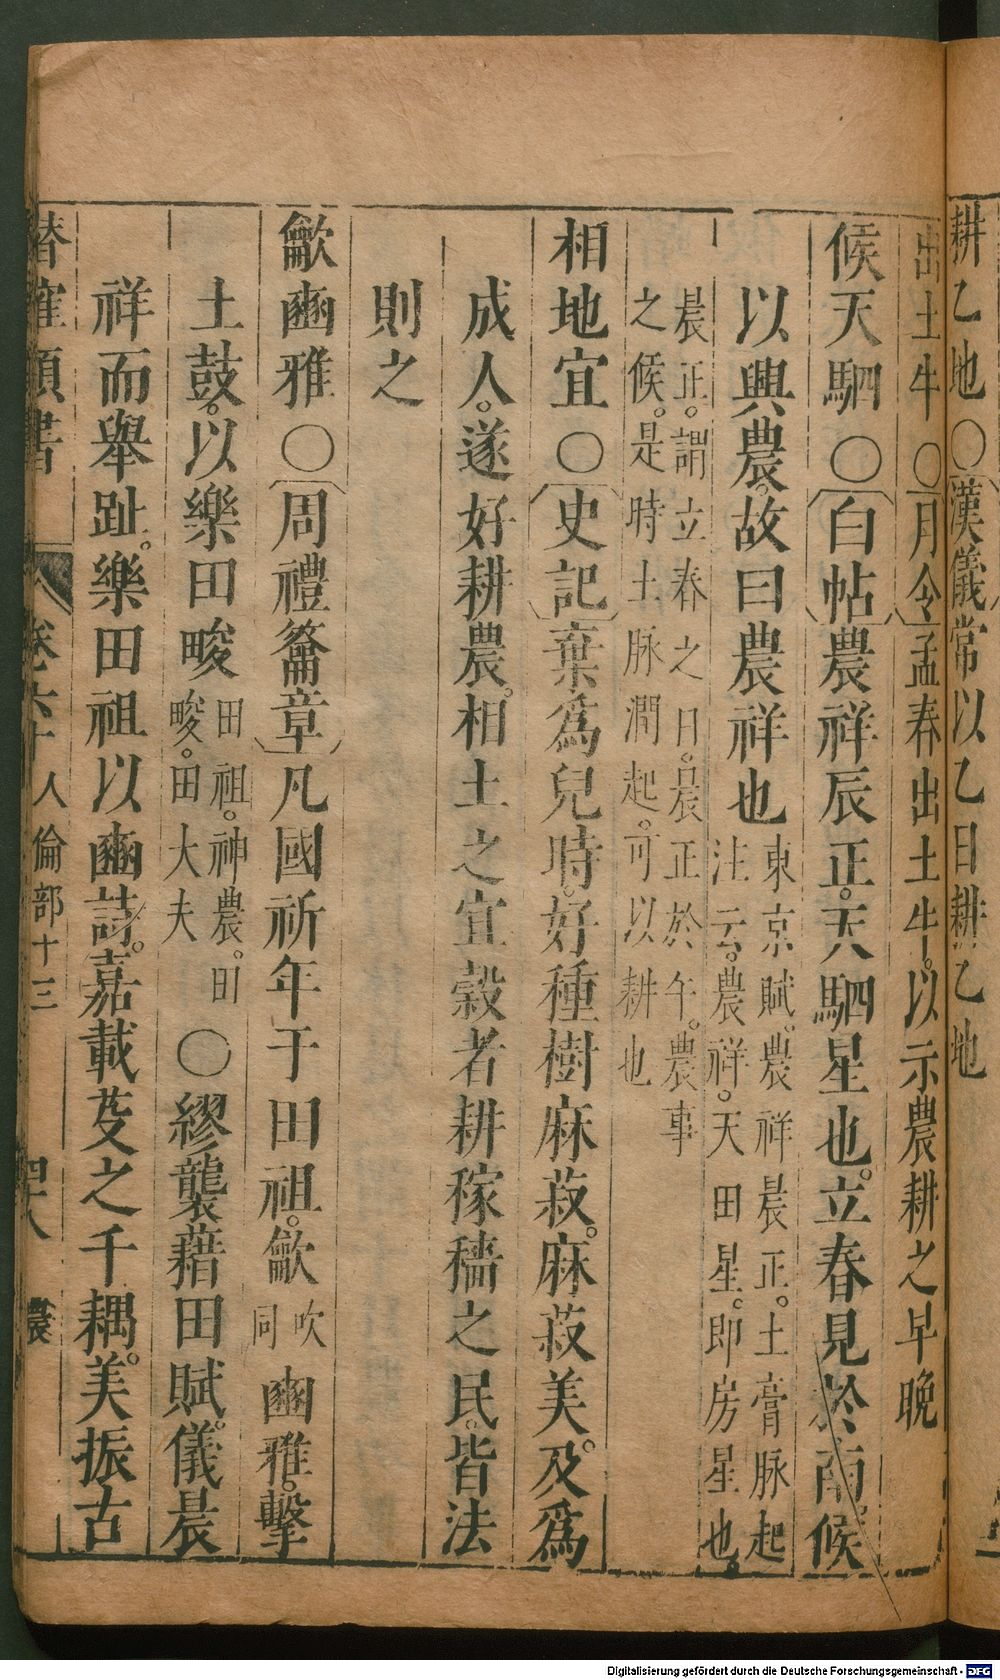 耕乙地○漢儀常以乙日耕乙地
出土牛○月令孟春出土牛。以示農耕之早晚
候天駟○白帖農祥辰正。天駟星也。立春見於南。候
以興農。故曰農祥也東京賦。農祥晨正。土膏脉起
注云。農祥。天田星。即房星也。
晨正。謂立春之日。晨正於午。農事
之候。是時土脉潤起。可以耕也
相地宜○史記棄爲兒時。好種樹麻菽。麻菽美。及爲
成人。遂好耕農。相土之宜穀者耕稼穡之民。皆法
則之
龡豳雅○周禮籥章凡國祈年于田祖。龡吹
同豳雅。擊
土鼓。以樂田畯田祖。神農。田
畯。田大夫○繆襲藉田賦。儀晨
祥而舉趾。樂田祖以豳詩。嘉載芟之千耦。美振古
潛確類書 卷六十 人倫部十三 四八 農
Digitalisierung gefördert durch die Deutsche Forschungsgemeinschaft - DFG